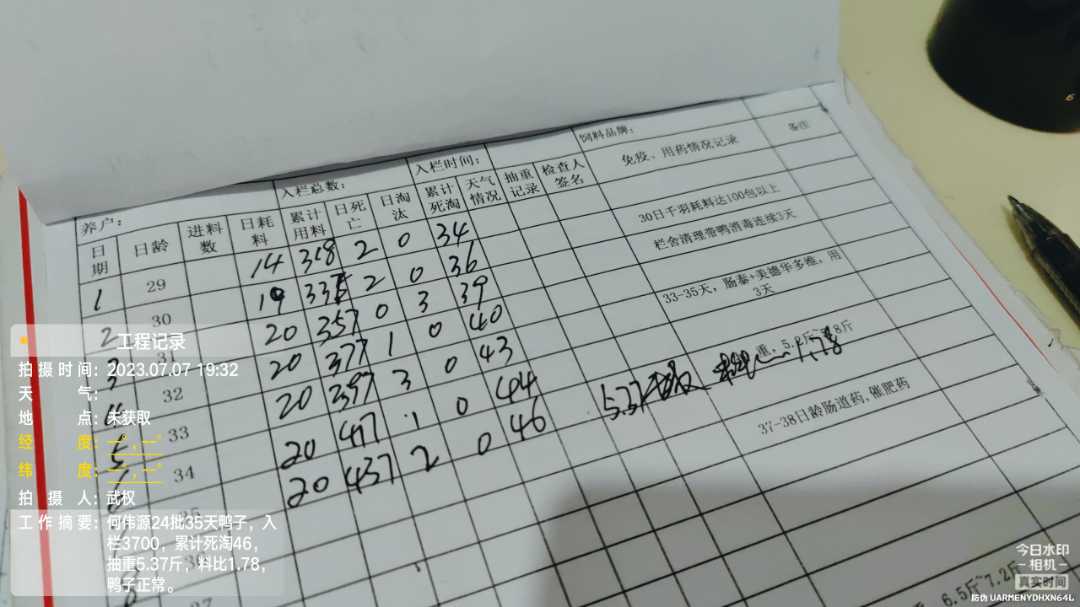 饲料品牌：
养户： 入栏总数： 入栏时间：
日期 日龄 进料数 日耗料 累计用料 日死亡 日淘汰 累计死淘 天气情况 抽重记录 检查人签名 免疫、用药情况记录 备注
1 29 14 318 2 0 34
30日千羽耗料达100包以上
2 30 19 2 0 36
栏舍清理带鸭消毒连续3天
3 31 20 357 0 3 39
20 377 1 0 40
33-35天，肠泰+美德华多维，用
3天
32
5 33 20 397 3 0 43
34 20 417 1 0 44
20 437 2 0 46
5.37 1.78
37-38日龄肠道药，催肥药
6.5斤~7.2斤
工程记录
拍摄时间：2023.07.07 19:32
天气：
地点：未获取
经度：--°，--°
纬度：--°，--°
拍摄人：武权
工作摘要：何伟源24批35天鸭子，入
栏3700，累计死淘46，
抽重5.37斤，料比1.78，
鸭子正常。
今日水印
-相机-
真实时间
防伪 UARMENYDHXN64L